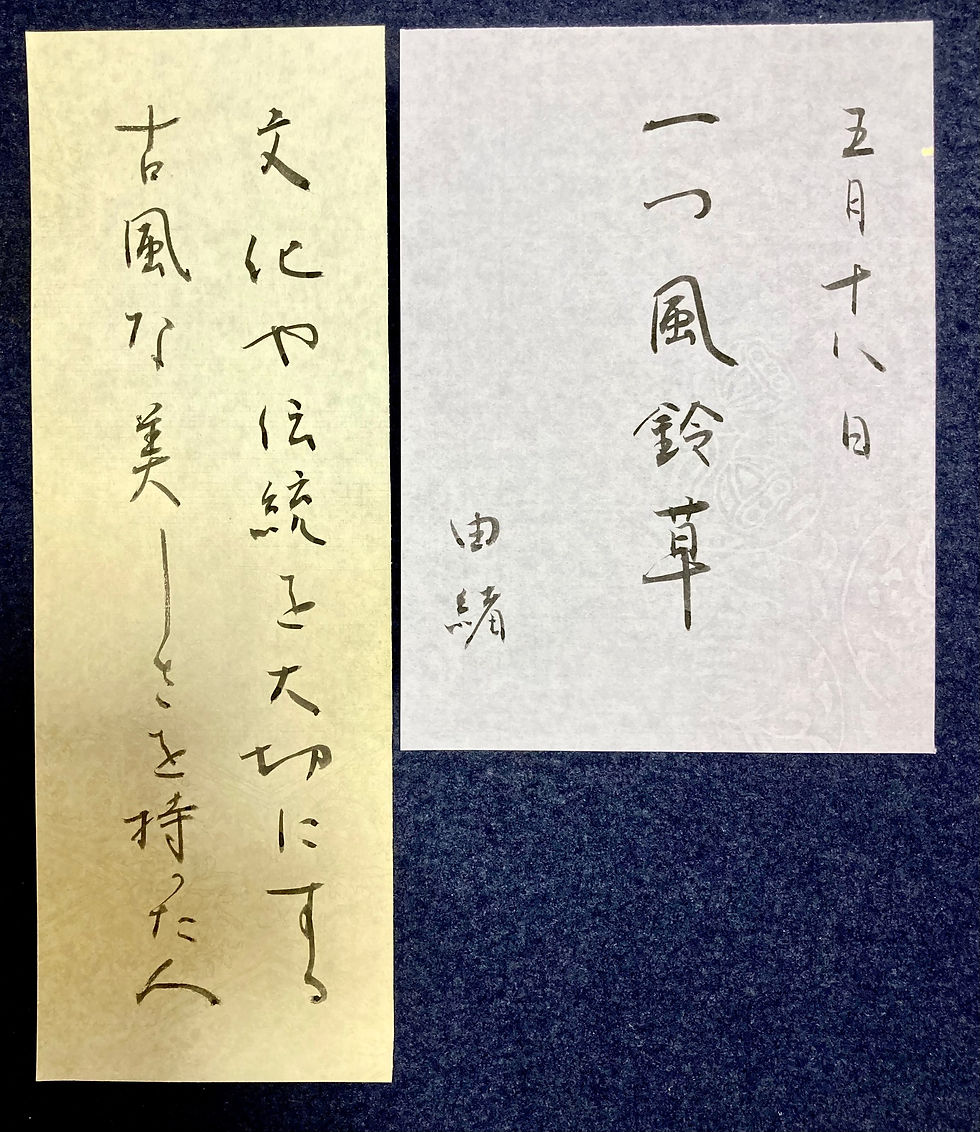 五月十八日
一つ風鈴草
由緒
文化や伝統を大切にする
古風な美しさを持った人